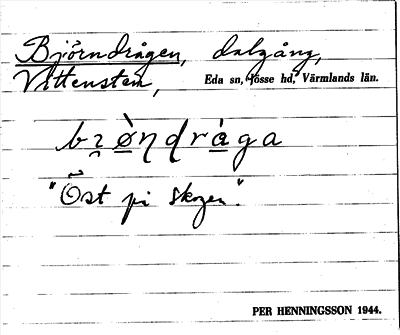 Björndrågen, dalgång,
Vittensten, Eda sn, Jösse hd, Värmlands län.
"Öst på skogen".
PER HENNINGSSON 1944.